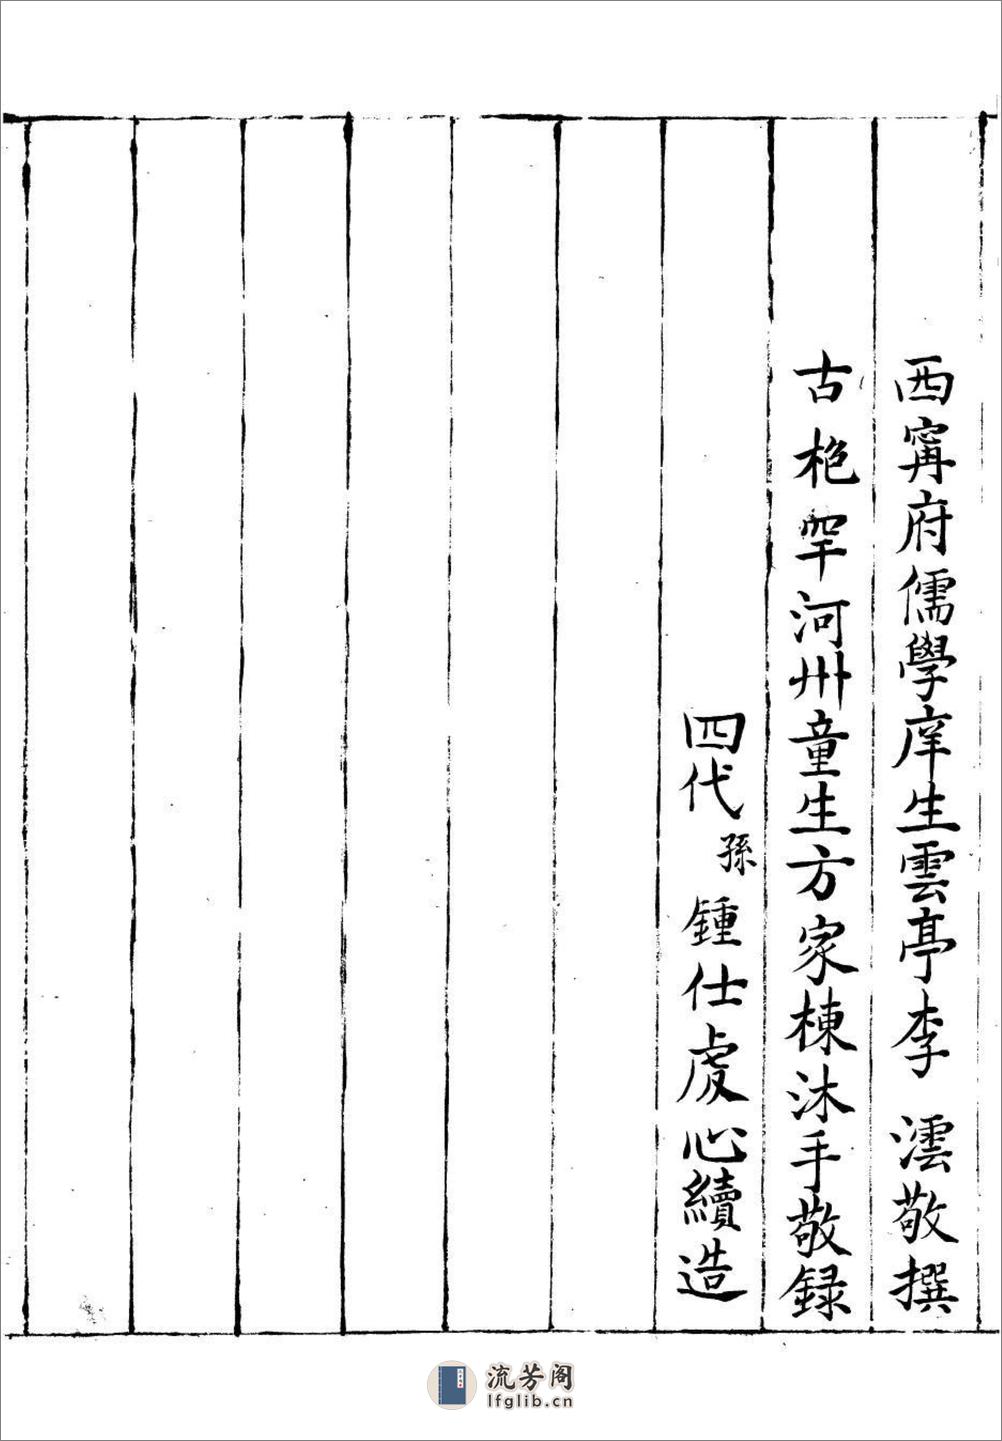 西甯府儒學庠生雲亭李 澐敬撰
古枹罕河州童生方家棟沐手敬録
四代孫鍾仕虔心續造
流芳阁
lfglib.cn